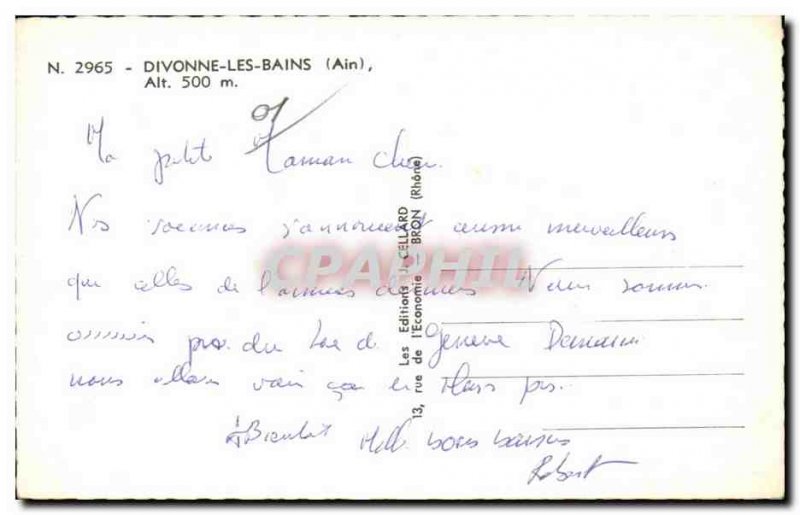 N. 2965 - DIVONNE-LES-BAINS (Ain),
Alt. 500 m.
01
Ma petite Maman Chérie
Nos vacances s'annoncent aussi merveilleuses
que celles de l'année dernière Nous sommes
arrivés près du Lac de Genève Demain
nous allons voir ça de plus près.
A Bientôt Mille bons baisers
Robert
Les Editions J. CELLARD
13, rue de l'Economie - BRON (Rhône)
CPAPHIL